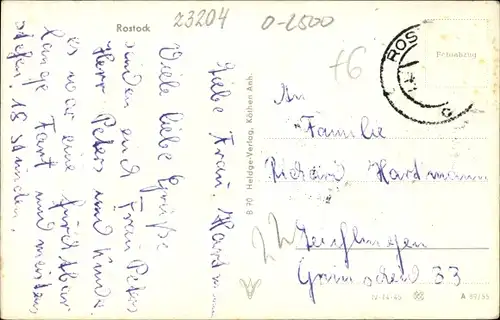 Rostock
23204
0-2500
+6
ROS
Liebe Frau Hartmann
Viele liebe Grüße
senden euch Frau Peters
Herr Peters und Kinder.
es war eine furchtbar
lange Fart und meistens
stehen. 18 Stunden.
B 70 Heldge-Verlag, Köthen Anh.
An
Familie
Richard Hartmann
33
IV-14-45
A 87/55